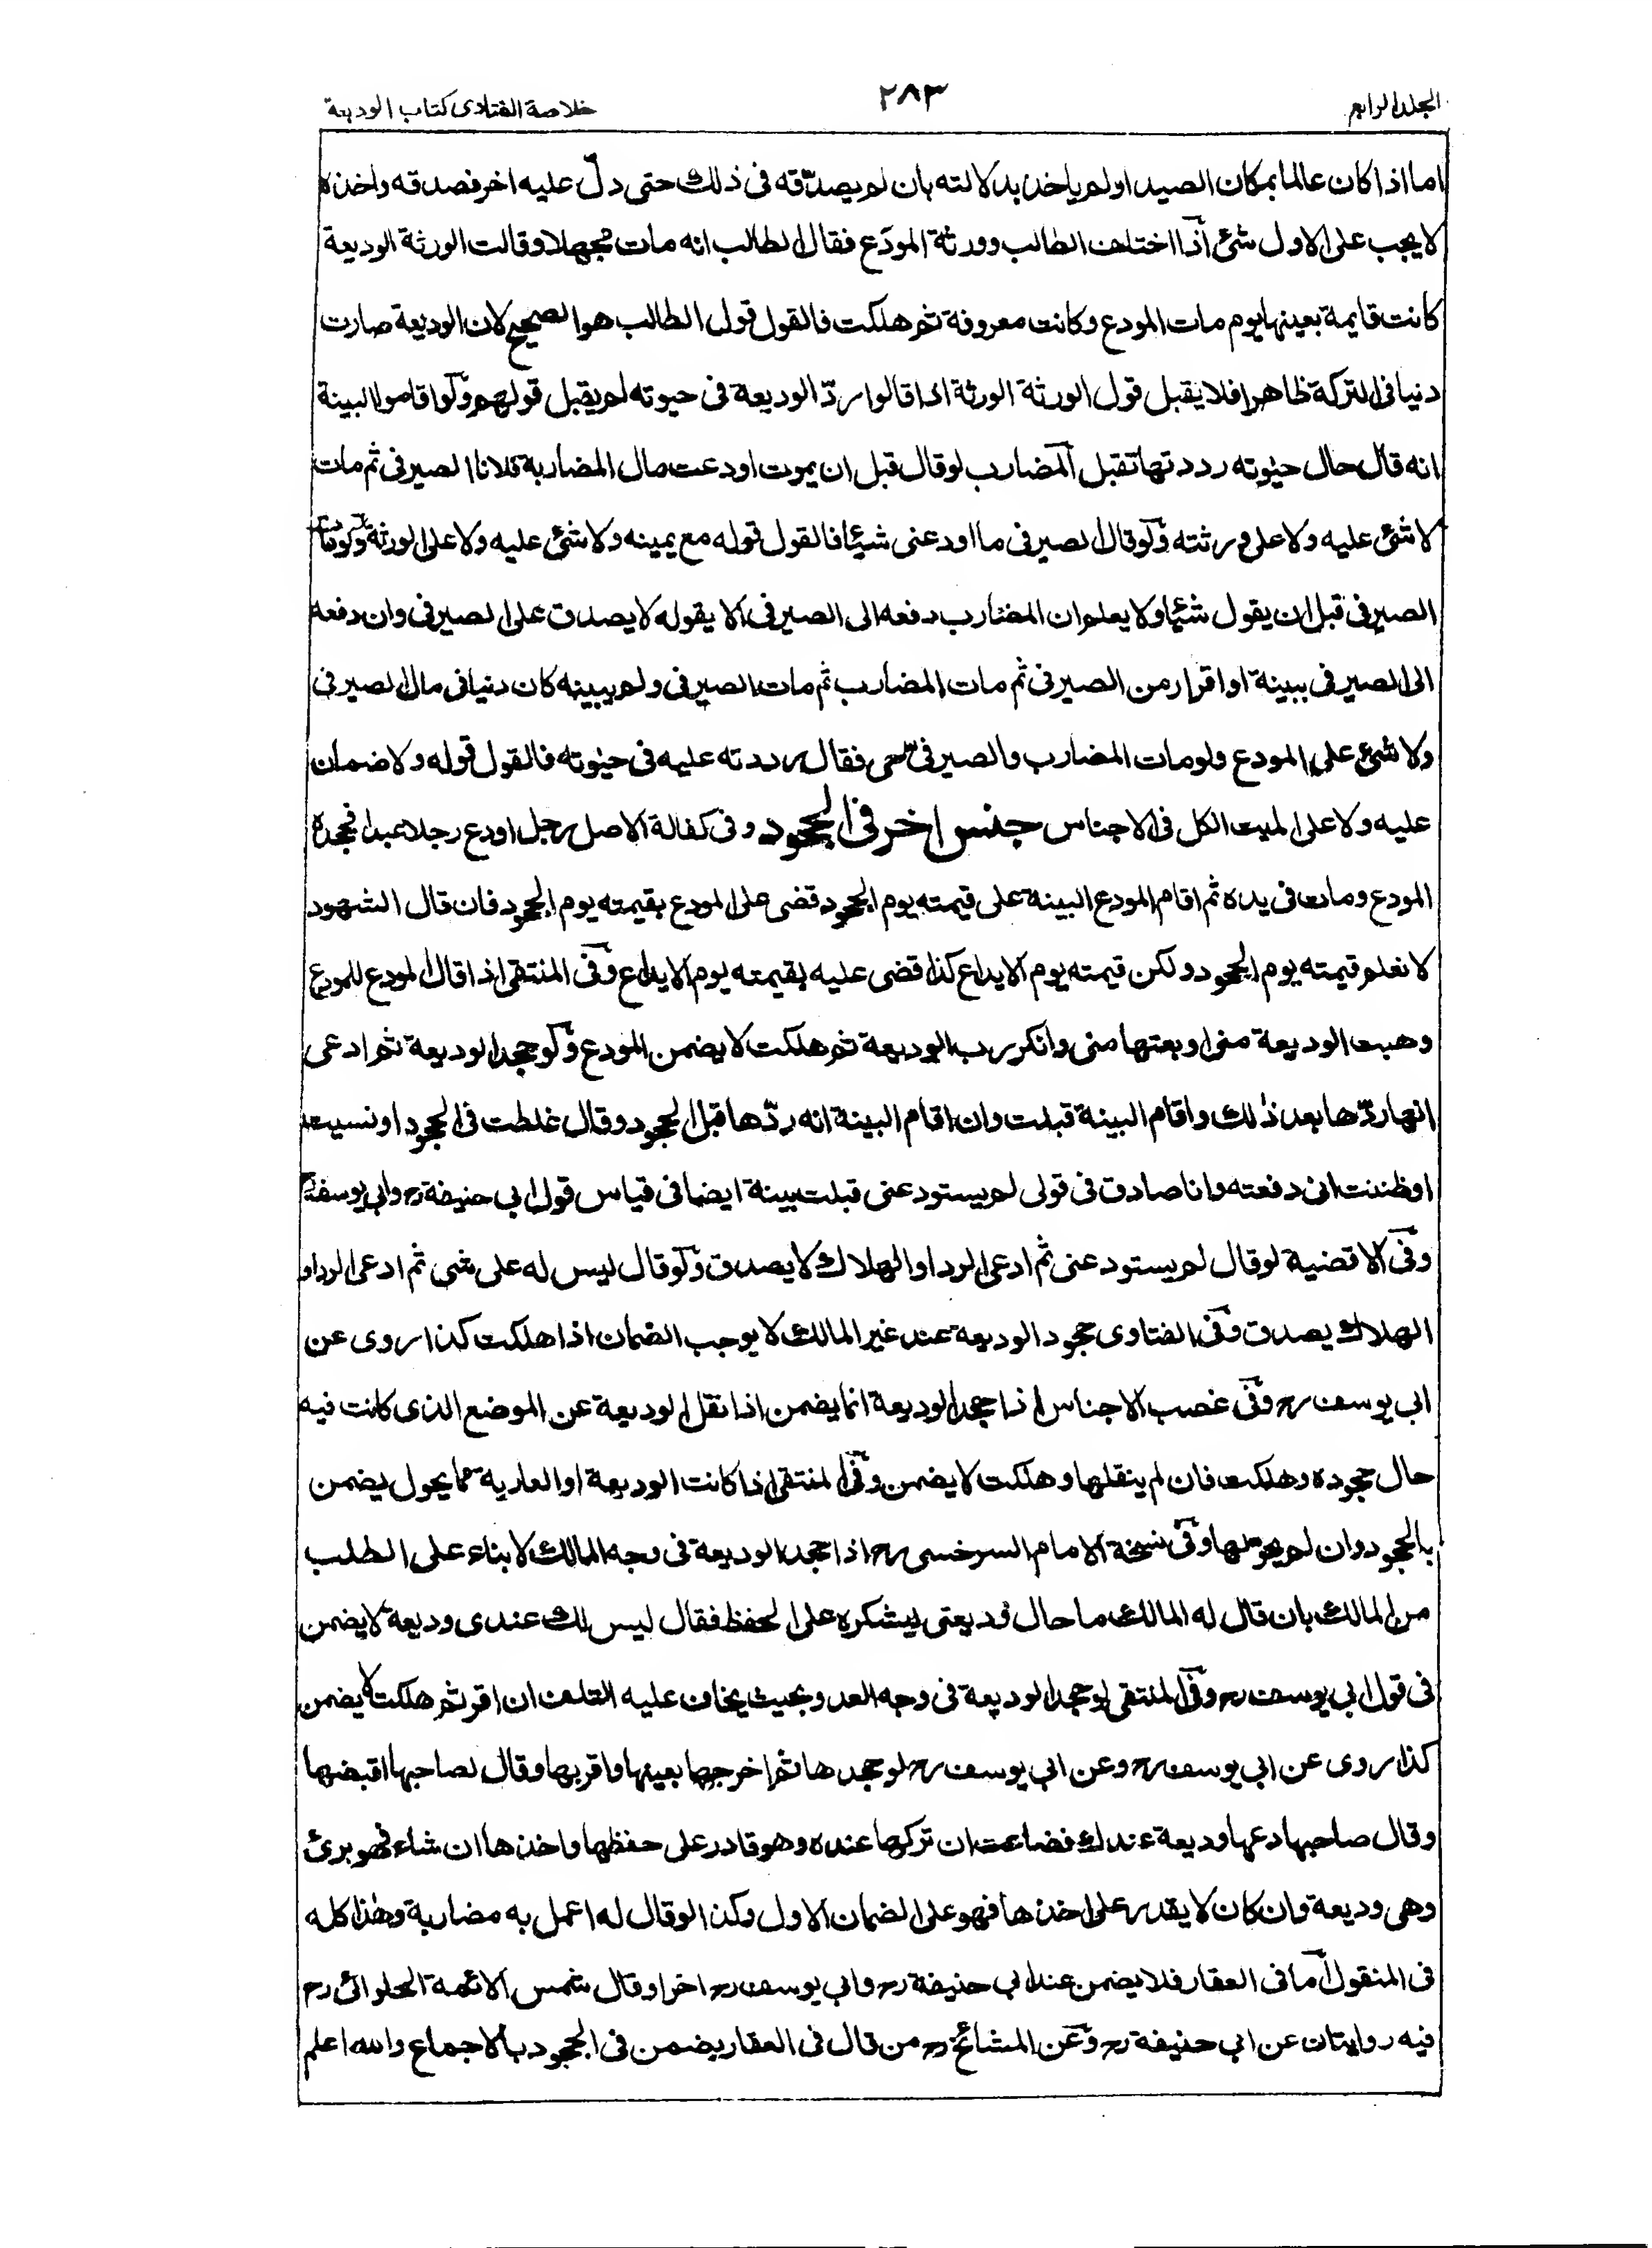 الجلد الرابع ٢٨٣ خلاصة الفتاوى كتاب الوديعة
اما اذا كان عالما بمكان الصيد او لم ياخذ بدلالته بان لم يصدّقه فى ذلك حتى دلّ عليه اخر فصدقه واخذه
لا يجب على الاول شئ اذا اختلف الطالب وورثة المودَع فقال الطالب انه مات مجهلا وقالت الورثة الوديعة
كانت قايمة بعينها يوم مات المودع وكانت معروفة ثم هلكت فالقول قول الطالب هو الصحيح لان الوديعة صارت
دينا فى التركة ظاهرا فلا يقبل قول الورثة الورثة اذا قالوا ردّ الوديعة فى حيوته لم يقبل قولهم ولو اقاموا البينة
انه قال حال حيوته رددتها تقبل المضارب لو قال قبل ان يموت اودعت مال المضاربة فلانا الصيرفى ثم مات
لا شئ عليه ولا على ورثته ولو قال الصيرفى ما اودعنى شيئا فالقول قوله مع يمينه ولا شئ عليه ولا على الورثة ولو مات
الصيرفى قبل ان يقول شيئا ولا يعلم ان المضارب دفعه الى الصيرفى الا بقوله لا يصدق على الصيرفى وان دفعه
الى الصيرفى ببينة او اقرار من الصيرفى ثم مات المضارب ثم مات الصيرفى ولم يبينه كان دينا فى مال الصيرفى
ولا شئ على المودع ولو مات المضارب والصيرفى حى فقال رددته عليه فى حيٰوته فالقول قوله ولا ضمان
عليه ولا على الميت الكل فى الاجناس جنس اخر فى الجحود وفى كفالة الاصل رجل اودع رجلا عبدا فجحده
المودع ومات فى يده ثم اقام المودع البينة على قيمته يوم الجحود قضى على المودع بقيمته يوم الجحود فان قال الشهود
لا نعلم قيمته يوم الجحود ولكن قيمته يوم الايداع كذا قضى عليه بقيمته يوم الايداع وفى المنتقى اذا قال المودع للمودع
وهبت الوديعة منى او بعتها منى وانكر رب الوديعة ثم هلكت لا يضمن المودع ولو جحد الوديعة ثم ادعى
انها ردّها بعد ذٰلك واقام البينة قبلت وان اقام البينة انه ردّها قبل الجحود وقال غلطت فى الجحود او نسيت
او ظننت انى دفعته وانا صادق فى قولى لم يستودعنى قبلت بينة ايضا فى قياس قول ابى حنيفة رح وابى يوسف رح
وفى الاقضية لو قال لم يستودعنى ثم ادعى الرد او الهلاك لا يصدق ولو قال ليس له على شى ثم ادعى الرد او
الهلاك يصدق وفى الفتاوى جحود الوديعة عند غير المالك لا يوجب الضمان اذا هلكت كذا روى عن
ابى يوسف رح وفى غصب الاجناس اذا جحد الوديعة انما يضمن اذا نقل الوديعة عن الموضع الذى كانت فيه
حال جحوده وهلكت فان لم ينقلها وهلكت لا يضمن وفى المنتقى اذا كانت الوديعة او العارية مما يحول يضمن
بالجحود وان لم يحولها وفى نسخة الامام السرخسى رح اذا جحد الوديعة فى وجه المالك لا بناء على الطلب
من المالك بان قال له المالك ما حال وديعتى ليشكره على الحفظ فقال ليس لك عندى وديعة لا يضمن
فى قول ابى يوسف رح وفى المنتقى لو جحد الوديعة فى وجه العدو بحيث يخاف عليه التلف ان اقر ثم هلكت لا يضمن
كذا روى عن ابى يوسف رح وعن ابى يوسف رح لو جحدها ثم اخرجها بعينها واقر بها وقال لصاحبها اقبضها
وقال صاحبها دعها وديعة عندك فضاعت ان تركها عنده وهو قادر على حفظها واخذها ان شاء فهو برئ
وهى وديعة وان كان لا يقدر على اخذها فهو على الضمان الاول وكذا لو قال له اعمل به مضاربة وهٰذا كله
فى المنقول اما فى العقار فلا يضمن عند ابى حنيفة رح وابى يوسف رح اخرا وقال شمس الائمة الحلوائى رح
فيه روايتان عن ابى حنيفة رح وعن المشائخ رح من قال فى العقار يضمن فى الجحود بالاجماع والله اعلم